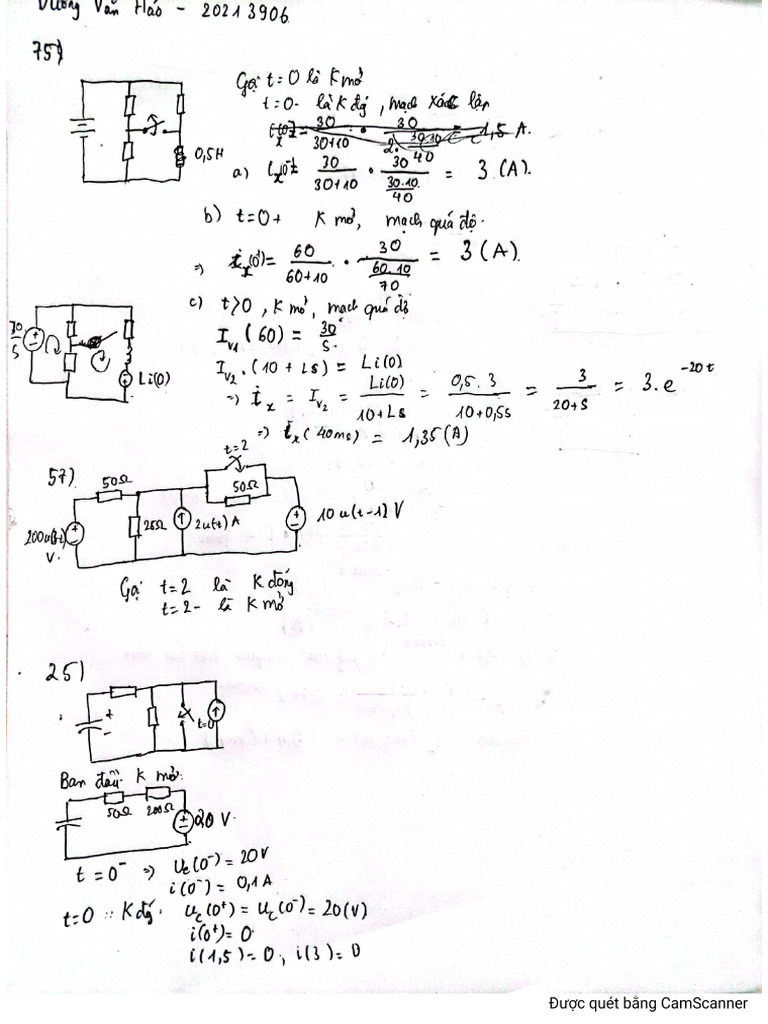 Dương Văn Hảo - 20213906
75)
Gọi t=0 là K mở
t=0- là K đg, mạch xác lập
0,5H
a) i_x(0^-) = 30/(30+10) · 30/(30.10/40) = 3 (A).
b) t=0+ K mở, mạch quá độ.
=> i_x(0^+) = 60/(60+10) · 30/(60.10/70) = 3 (A)
c) t>0, K mở, mạch quá độ
30/S
Li(0)
I_v1 (60) = 30/S.
I_v2 . (10 + Ls) = Li(0)
=> i_x = I_v2 = Li(0)/(10+Ls) = 0,5.3/(10+0,5s) = 3/(20+s) = 3.e^(-20t)
=> i_x(40ms) = 1,35(A)
57)
50Ω
t=2
50Ω
25Ω
2u(t) A
10 u(t-1) V
V.
Gọi t=2 là K đóng
t=2- là K mở
25)
+
-
t=0
Ban đầu K mở.
50Ω
200Ω
20 V.
t = 0^- => u_c(0^-) = 20V
i(0^-) = 0,1A
t=0 : K đg. u_c(0^+) = u_c(0^-) = 20(V)
i(0^+) = 0
i(1,5) = 0, i(3) = 0
Được quét bằng CamScanner